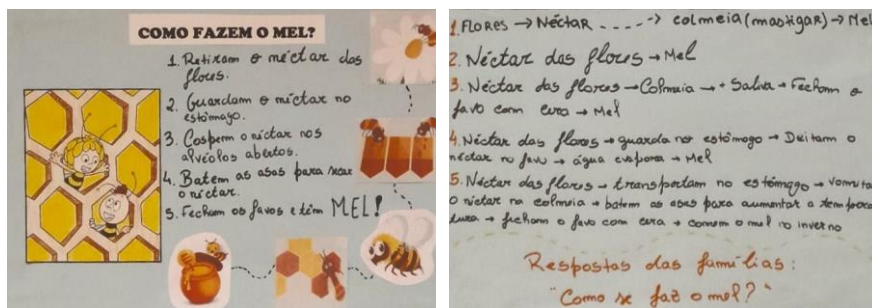 COMO FAZEM O MEL?
1. Retiram o néctar das
flores.
2. Guardam o néctar no
estômago.
3. Cospem o néctar nos
alvéolos abertos.
4. Batem as asas para secar
o néctar.
5. Fecham os favos e têm MEL!
1. FLORES → Néctar ----> colmeia (mastigar) → Mel
2. Néctar das flores → Mel
3. Néctar das flores → Colmeia → + Saliva → Fecham o
favo com cera → Mel
4. Néctar das flores → guarda no estômago → Deitam o
néctar no favo → água evapora → Mel
5. Néctar das flores → transportam no estômago → vomita
o néctar na colmeia → batem as asas para aumentar a tempera
tura → fecham o favo com cera → comem o mel no inverno
Respostas das famílias:
"Como se faz o mel?"